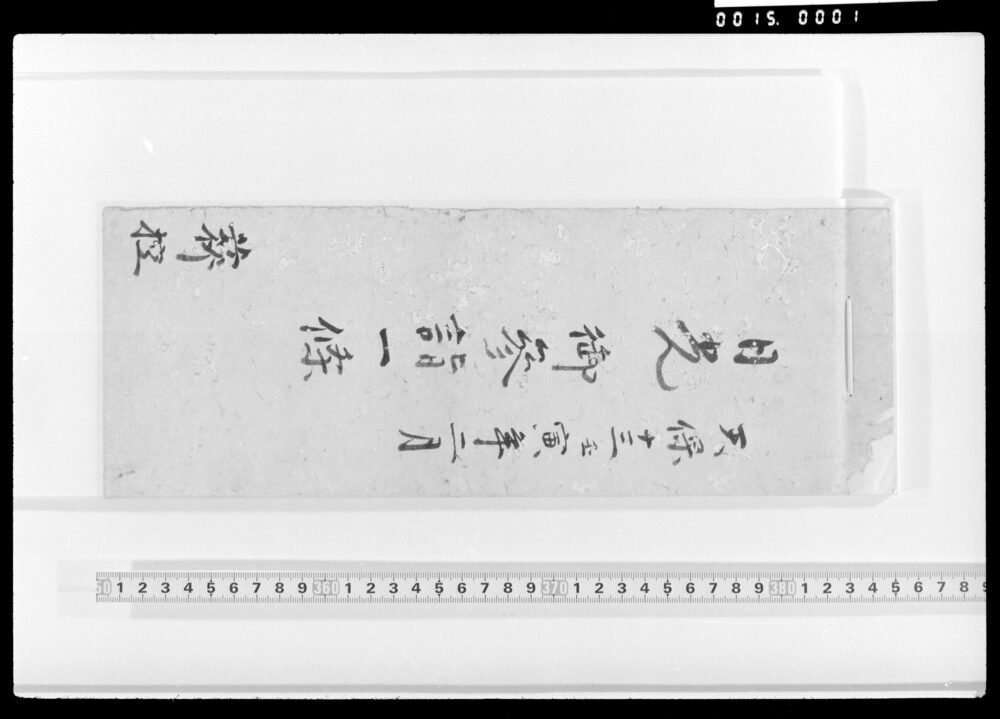 0015.0001
天保十三壬寅年二月
日光御参詣一條
控
1 2 3 4 5 6 7 8 9 360 1 2 3 4 5 6 7 8 9 370 1 2 3 4 5 6 7 8 9 380 1 2 3 4 5 6 7 8